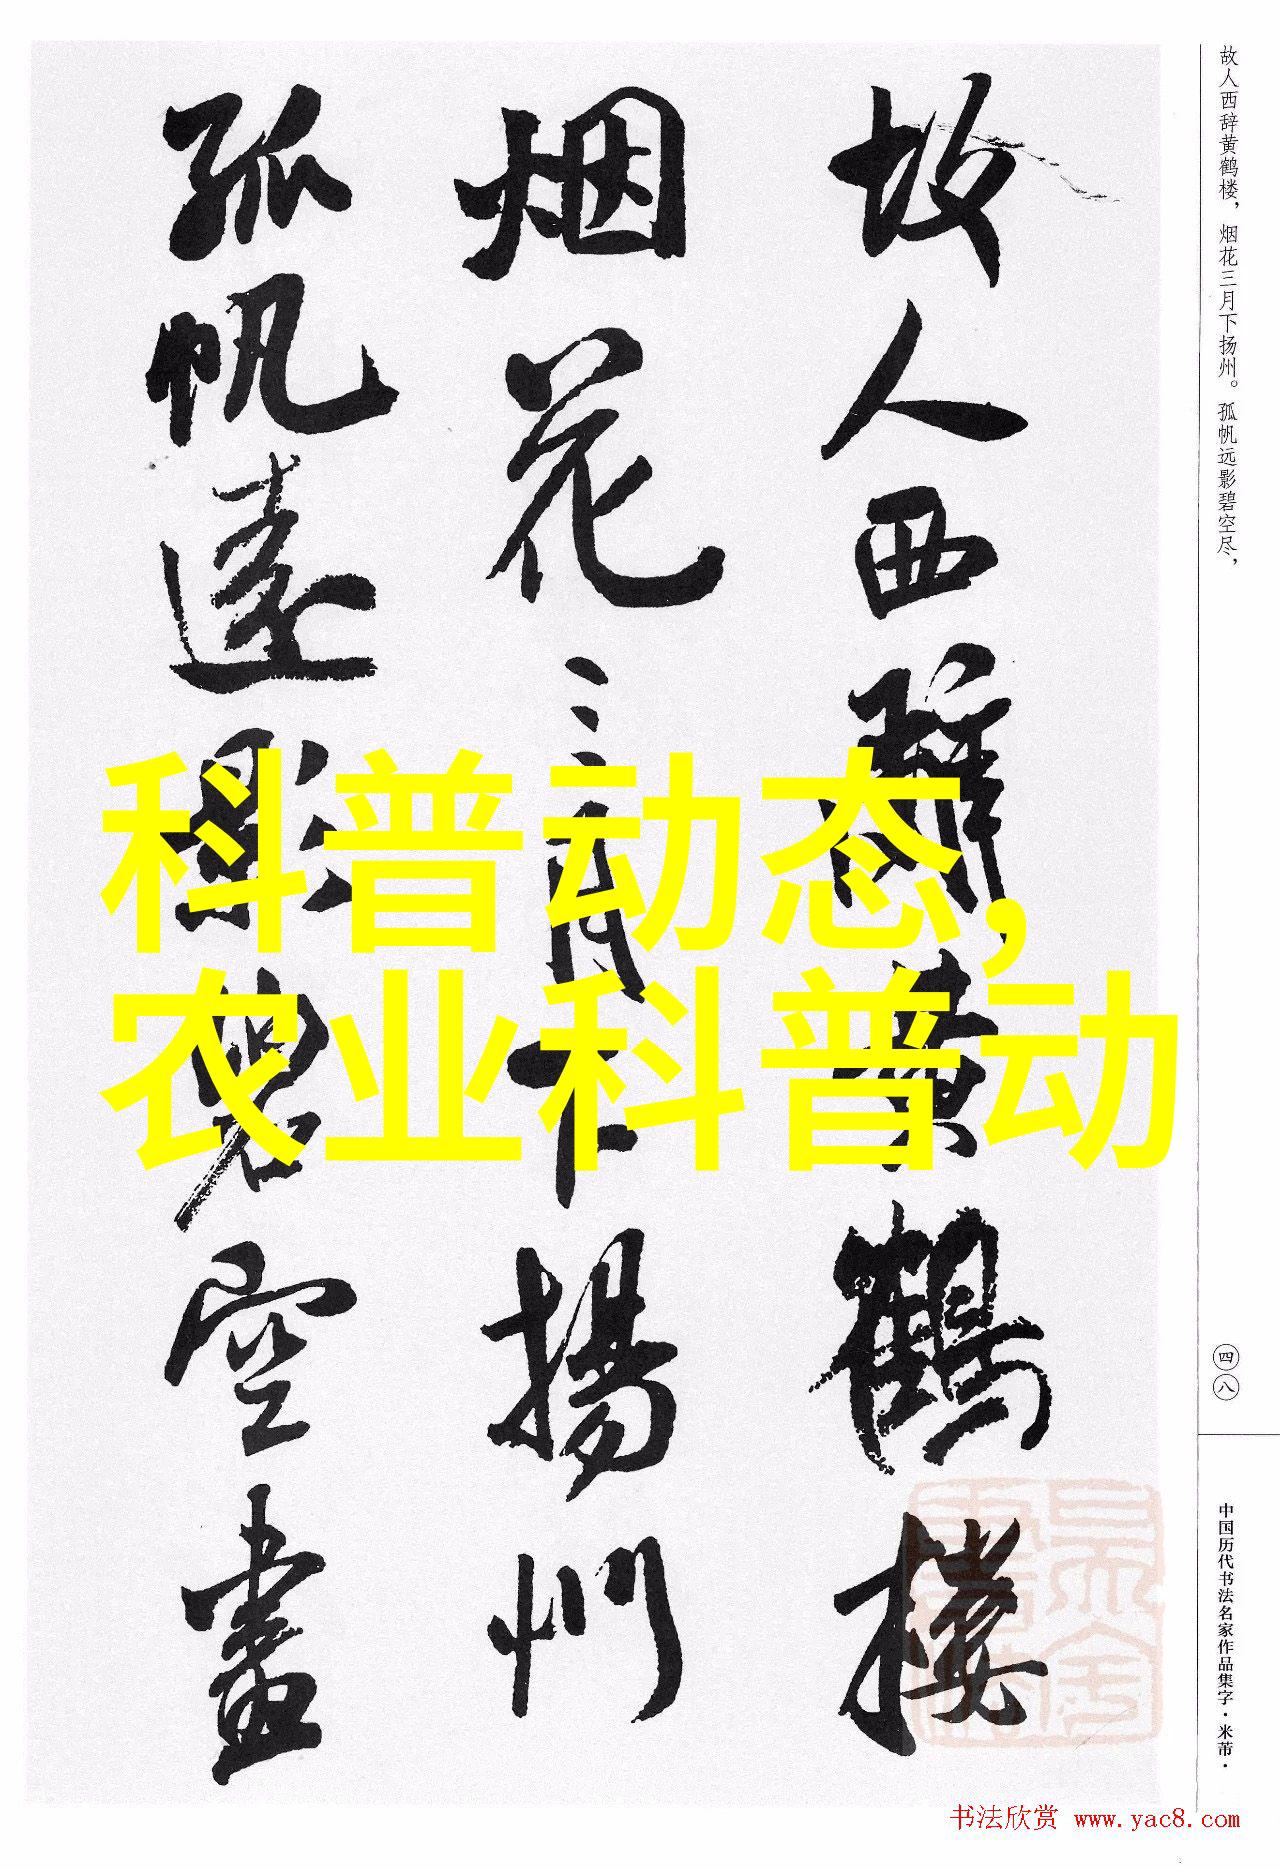 故人西辞黄鹤楼，烟花三月下扬州。孤帆远影碧空尽，
故人西辭黄鶴楼
烟花三月下揚州
孤帆遠影碧空盡
科普动态，
农业科普动
四八
中国历代书法名家作品集字·米芾·
书法欣赏 www.yac8.com